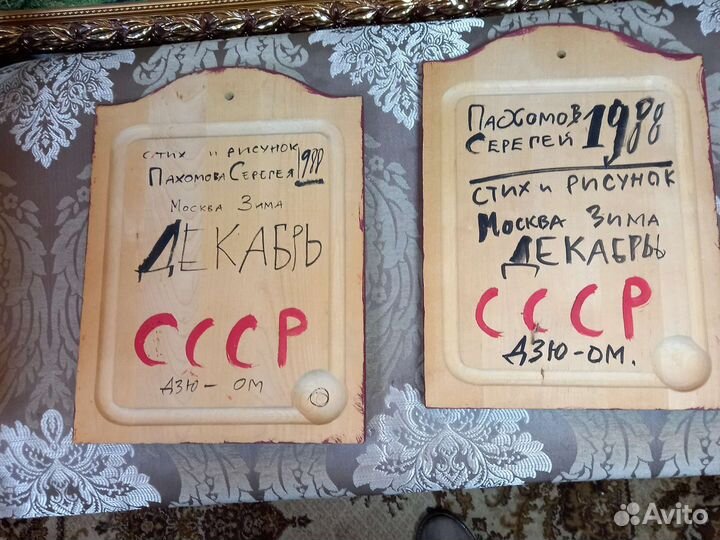 СТИХ И РИСУНОК
ПАХОМОВА СЕРЕГЕЯ 1988
МОСКВА ЗИМА
ДЕКАБРЬ
СССР
ДЗЮ-ОМ
ПАХОМОВ
СЕРЕГЕЙ 1988
СТИХ И РИСУНОК
МОСКВА ЗИМА
ДЕКАБРЬ
СССР
ДЗЮ-ОМ.
Avito